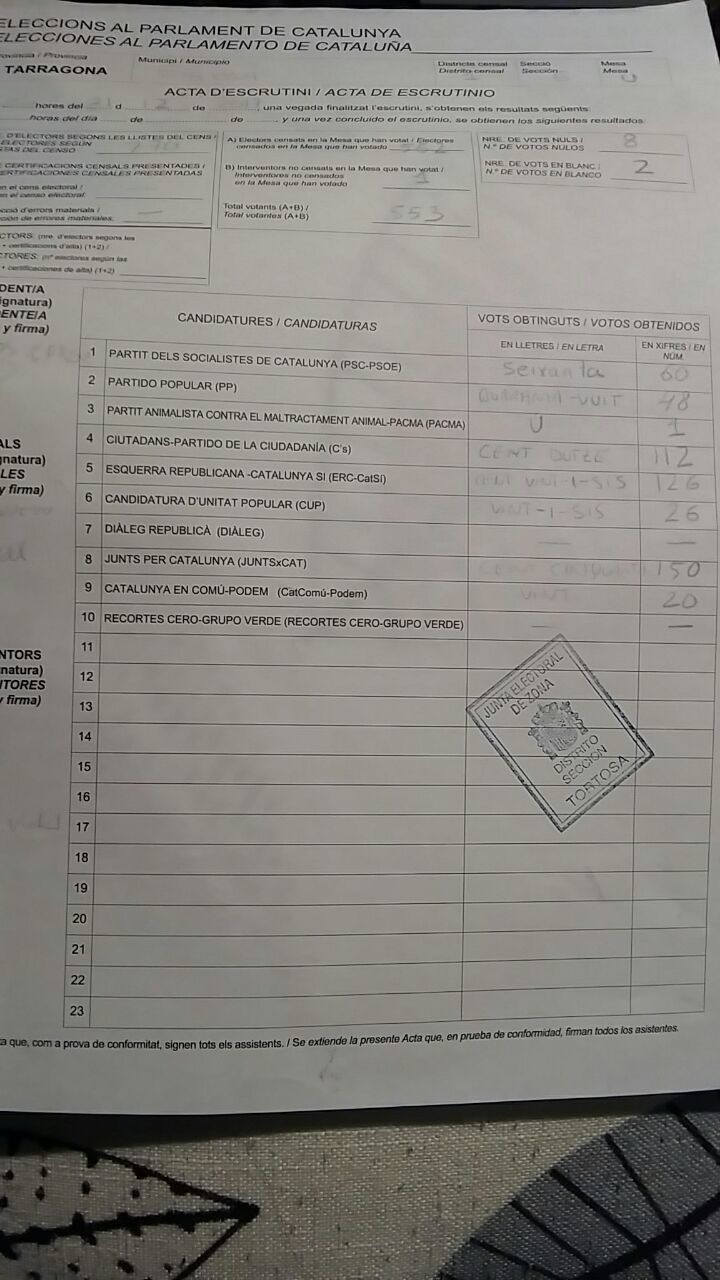 ELECCIONS AL PARLAMENT DE CATALUNYA
ELECCIONES AL PARLAMENTO DE CATALUÑA
Provincia / Provincia
Municipi / Municipio
Districte censal
Distrito censal
Secció
Sección
Mesa
Mesa
TARRAGONA
U
ACTA D'ESCRUTINI / ACTA DE ESCRUTINIO
hores del 21 d 12 de , una vegada finalitzat l'escrutini, s'obtenen els resultats següents:
horas del día de de , y una vez concluido el escrutinio, se obtienen los siguientes resultados:
D'ELECTORS SEGONS LES LLISTES DEL CENS /
ELECTORES SEGÚN
LISTAS DEL CENSO
CERTIFICACIONS CENSALS PRESENTADES /
CERTIFICACIONES CENSALES PRESENTADAS
en el cens electoral /
en el censo electoral
cció d'errors materials /
ción de errores materiales.
—
CTORS: (nre. d'electors segons les
+ certificacions d'alta) (1+2) /
CTORES: (nº electores según las
+ certificaciones de alta) (1+2)
A) Electors censats en la Mesa que han votat / Electores
censados en la Mesa que han votado 552
B) Interventors no censats en la Mesa que han votat /
Interventores no censados
en la Mesa que han votado 1
Total votants (A+B) /
Total votantes (A+B)
553
NRE. DE VOTS NULS /
N.º DE VOTOS NULOS
8
NRE. DE VOTS EN BLANC /
N.º DE VOTOS EN BLANCO
2
DENT/A
ignatura)
ENTE/A
y firma)
CANDIDATURES / CANDIDATURAS
VOTS OBTINGUTS / VOTOS OBTENIDOS
EN LLETRES / EN LETRA
EN XIFRES / EN NÚM.
1 PARTIT DELS SOCIALISTES DE CATALUNYA (PSC-PSOE) Seixanta 60
2 PARTIDO POPULAR (PP) QUARANTA-VUIT 48
3 PARTIT ANIMALISTA CONTRA EL MALTRACTAMENT ANIMAL-PACMA (PACMA) U 1
4 CIUTADANS-PARTIDO DE LA CIUDADANÍA (C's) CENT DOTZE 112
5 ESQUERRA REPUBLICANA -CATALUNYA SÍ (ERC-CatSí) CENT VINT-I-SIS 126
6 CANDIDATURA D'UNITAT POPULAR (CUP) VINT-I-SIS 26
7 DIÀLEG REPUBLICÀ (DIÀLEG) — —
8 JUNTS PER CATALUNYA (JUNTSxCAT) CENT CINQUANTA 150
9 CATALUNYA EN COMÚ-PODEM (CatComú-Podem) VINT 20
10 RECORTES CERO-GRUPO VERDE (RECORTES CERO-GRUPO VERDE) — —
11
12
13
14
15
16
17
18
19
20
21
22
23
ALS
gnatura)
LES
y firma)
NTORS
natura)
ITORES
y firma)
JUNTA ELECTORAL
DE ZONA
DISTRITO
SECCIÓN
TORTOSA
ta que, com a prova de conformitat, signen tots els assistents. / Se extiende la presente Acta que, en prueba de conformidad, firman todos los asistentes.